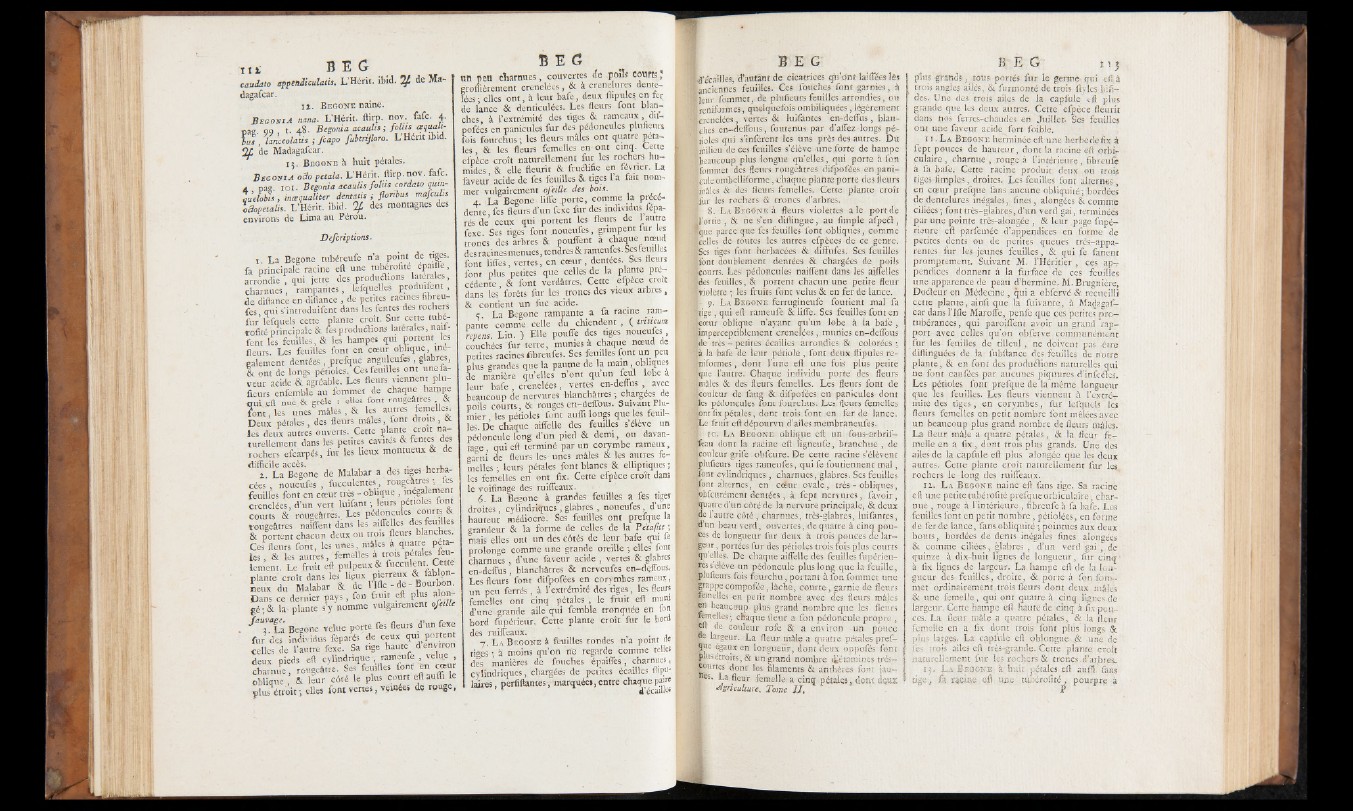 112 BEG
caudato appendiculatis. L'Hérit. ibid. ♃ de Ma-
dagaſcar.
12. BEGONE naine.
BEGONIA nana. L'Hérit. ſtirp. nov. faſc. 4.
pag. 99, t. 48. Begonia acaulis; foliis æquali-
bus, lanceolatis; ſcapo ſubtrifloro. L'Hérit ibid.
♃ de Madagaſcar.
13. BEGONE à huit pétales.
BEGONIA octo petala. L'Hérit. ſtirp. nov. faſc.
4, pag. 101. Begonia acaulis foliis cordato quin-
quelobis, inæqualiter dentatis; floribus maſculis
octopetalis. L'Hérit. ibid. ♃ des montagnes des
environs de Lima au Pérou.
Deſcriptions.
1. La Begone tubéreuſe n'a point de tiges.
ſa principale racine eſt une tubéroſité épaiſſe,
arrondie, qui jette des productions latérales,
charnues, rampantes, leſquelles produiſent,
de diſtance en diſtance, de petites racines fibreu-
ſes, qui s'introduiſent dans les fentes des rochers
ſur leſquels cette plante croît. Sur cette tubé-
roſité principale & ſes productions latérales, naiſ-
ſent les feuilles, & les hampes qui portent les
fleurs. Les feuilles ſont en cœur oblique, iné-
galement dentées, preſque anguleuſes, glabres,
& ont de longs pétioles. Ces feuilles ont une ſa-
veur acide & agréable. Les fleurs viennent plu-
ſieurs enſemble au ſommet de chaque hampe
qui eſt nue & grêle: elles ſont rougeâtres, &
ſont, les unes mâles, & les autres femelles.
Deux pétales, des fleurs mâles, ſont droits, &
les deux autres ouverts. Cette plante croît na-
turellement dans les petites cavités & fentes des
rochers eſcarpés, ſur les lieux montueux & de
difficile accès.
2. La Begone de Malabar a des tiges herba-
cées, noueuſes, ſucculentes, rougeâtres; ſes
feuilles ſont en cœur très-oblique, inégalement
crenelées, d'un vert luiſant; leurs pétioles ſont
courts & rougeâtres. Les pédoncules courts &
rougeâtres naiſſent dans les aiſſelles des feuilles
& portent chacun deux ou trois fleurs blanches.
Ces fleurs ſont, les unes, mâles à quatre péta-
les, & les autres, femelles à trois pétales ſeu-
lement. Le fruit eſt pulpeux & ſucculent. Cette
plante croît dans les lieux pierreux & ſablon-
neux du Malabar & de l'Iſle-de-Bourbon.
Dans ce dernier pays, ſon fruit eſt plus alon-
gé; & la plante s'y nomme vulgairement oſeille
ſauvage.
3. La Begone velue porte ſes fleurs d'un ſexe
ſur des individus ſéparés de ceux qui portent
celles de l'autre ſexe. Sa tige haute d'environ
deux pieds eſt cylindrique, rameuſe, velue,
charnue, rougeâtre. Ses feuilles ſont en cœur
oblique, & leur côté le plus court eſt auſſi le
plus étroit; elles ſont vertes, veinées de rouge,
BEG
un peu charnues, couvertes de poils courts,
groſſièrement crenelées, & à crenelures dente-
lées; elles ont, à leur baſe, deux ſtipules en fer
de lance & denticulées. Les fleurs ſont blan-
ches, à l'extrémité des tiges & rameaux, diſ-
poſées en panicules ſur des pédoncules pluſieurs
fois fourchus; les fleurs mâles ont quatre péta-
les, & les fleurs femelles en ont cinq. Cette
eſpèce croît naturellement ſur les rochers hu-
mides, & elle fleurit & fructifie en février. La
ſaveur acide de ſes feuilles & tiges l'a fait nom-
mer vulgairement oſeille des bois.
4. La Begone liſſe porte, comme la précé-
dente, ſes fleurs d'un ſexe ſur des individus ſépa-
rés de ceux qui portent les fleurs de l'autre
ſexe. Ses tiges ſont noueuſes, grimpent ſur les
troncs des arbres & pouſſent à chaque nœud
des racines menues, tendres & rameuſes. Ses feuilles
ſont liſſes, vertes, en cœur, dentées. Ses fleurs
ſont plus petites que celles de la plante pré-
cédente, & ſont verdâtres. Cette eſpèce croît
dans les forêts ſur les troncs des vieux arbres,
& contient un ſuc acide.
5. La Begone rampante a ſa racine ram-
pante comme celle du chiendent, (triticum
repens. Lin.) Elle pouſſe des tiges noueuſes,
couchées ſur terre, munies à chaque nœud de
petites racines fibreuſes. Ses feuilles ſont un peu
plus grandes que la paume de la main, obliques
de manière qu'elles n'ont qu'un ſeul lobe à
leur baſe, crenelées, vertes en-deſſus, avec
beaucoup de nervures blanchâtres; chargées de
poils courts, & rouges en-deſſous. Suivant Plu-
mier, les pétioles ſont auſſi longs que les feuil-
les. De chaque aiſſelle des feuilles s'élève un
pédoncule long d'un pied & demi, ou davan-
tage, qui eſt terminé par un corymbe rameux,
garni de fleurs les unes mâles & les autres fe-
melles; leurs pétales ſont blancs & elliptiques;
les femelles en ont ſix. Cette eſpèce croît dans
le voiſinage des ruiſſeaux.
6. La Begone à grandes feuilles a ſes tiges
droites, cylindriques, glabres, noueuſes, d'une
hauteur médiocre. Ses feuilles ont preſque la
grandeur & la forme de celles de la Petaſite;
mais elles ont un des côtés de leur baſe qui ſe
prolonge comme une grande oreille; elles ſont
charnues, d'une ſaveur acide, vertes & glabres
en-deſſus, blanchâtres & nerveuſes en-deſſous.
Les fleurs ſont diſpoſées en corymbes rameux,
un peu ſerrés, à l'extrémité des tiges, les fleurs
femelles ont cinq pétales, le fruit eſt muni
d'une grande aile qui ſemble tronquée en ſon
bord ſupérieur. Cette plante croît ſur le bord
des ruiſſeaux.
7. LA BEGONE à feuilles rondes n'a point de
tiges; à moins qu'on ne regarde comme telles
des manières de ſouches épaiſſes, charnues,
cylindriques, chargées de petites écailles ſtipu-
laires, perſiſtantes, marquées, entre chaque paire
d'écailles
BEG
d'écailles, d'autant de cicatrices qu'ont laiſſées les
anciennes feuilles. Ces ſouches ſont garnies, à
leur ſommet, de pluſieurs feuilles arrondies, ou
reniformes, quelquefois ombiliquées, légèrement
crenelées, vertes & luiſantes en-deſſus, blan-
ches en-deſſous, ſoutenus par d'aſſez longs pé-
tioles qui s'inſèrent les uns près des autres. Du
milieu de ces feuilles s'élève une ſorte de hampe
beaucoup plus longue qu'elles, qui porte à ſon
ſommet des fleurs rougeâtres diſpoſées en pani-
cule ombelliforme, chaque plante porte des fleurs
mâles & des fleurs femelles. Cette plante croît
ſur les rochers & troncs d'arbres.
8. LA BEGONE à fleurs violettes a le port de
l'ortie, & ne s'en diſtingue, au ſimple aſpect,
que parce que ſes feuilles ſont obliques, comme
celles de toutes les autres eſpèces de ce genre.
Ses tiges ſont herbacées & diffuſes. Ses feuilles
ſont doublement dentées & chargées de poils
courts. Les pédoncules naiſſent dans les aiſſelles
des feuilles, & portent chacun une petite fleur
violette; les fruits ſont velus & en fer de lance.
9. LA BEGONE ferrugineuſe ſoutient mal ſa
tige, qui eſt rameuſe & liſſe. Ses feuilles ſont en
cœur oblique n'ayant qu'un lobe à la baſe,
imperceptiblement crenelées, munies en-deſſous
de très-petites écailles arrondies & colorées;
à la baſe de leur pétiole, ſont deux ſtipules re-
niformes, dont l'une eſt une fois plus petite
que l'autre. Chaque individu porte des fleurs
mâles & des fleurs femelles. Les fleurs ſont de
couleur de ſang & diſpoſées en panicules dont
les pédoncules ſont fourchus. Les fleurs femelles
ont ſix pétales, dont trois ſont en fer de lance.
Le fruit eſt dépourvu d'ailes membraneuſes.
10. LA BEGONE oblique eſt un ſous-arbriſ-
ſeau dont la racine eſt ligneuſe, branchue, de
couleur griſe obſcure. De cette racine s'élèvent
pluſieurs tiges rameuſes, qui ſe ſoutiennent mal,
ſont cylindriques, charnues, glabres. Ses feuilles
ſont alternes, en cœur ovale, très-obliques,
obſcurément dentées, à ſept nervures, ſavoir,
quatre d'un côté de la nervure principale, & deux
de l'autre côté, charnues, très-glabres, luiſantes,
d'un beau verd, ouvertes, de quatre à cinq pou-
ces de longueur ſur deux à trois pouces de lar-
geur, portées ſur des pétioles trois fois plus courts
qu'elles. De chaque aiſſelle des feuilles ſupérieu-
res s'élève un pédoncule plus long que la feuille,
pluſieurs fois fourchu, portant à ſon ſommet une
grappe compoſée, lâche, courte, garnie de fleurs
femelles en petit nombre avec des fleurs mâles
en beaucoup plus grand nombre que les fleurs
femelles; chaque fleur a ſon pédoncule propre,
eſt de couleur roſe & a environ un pouce
de largeur. La fleur mâle a quatre pétales preſ-
que égaux en longueur, dont deux oppoſés ſont
plus étroits, & un grand nombre d'étamines très-
courtes dont les filaments & anthères ſont jau-
nes. La fleur femelle a cinq pétales, dont deux
Agriculture. Tome II.
BEG 113
plus grands, tous portés ſur le germe qui eſt à
trois angles ailés, & ſurmonté de trois ſtyles bifi-
des. Une des trois ailes de la capſule eſt plus
grande que les deux autres. Cette eſpèce fleurit
dans nos ſerres-chaudes en Juillet. Ses feuilles
ont une ſaveur acide fort foible.
11. LA BEGONE herminée eſt une herbe de ſix à
ſept pouces de hauteur, dont la racine eſt orbi-
culaire, charnue, rouge à l'intérieure, fibreuſe
à ſa baſe. Cette racine produit deux ou trois
tiges ſimples, droites. Les feuilles ſont alternes,
en cœur preſque ſans aucune obliquité; bordées
de dentelures inégales, fines, alongées & comme
ciliées; ſont très-glabres, d'un verd gai, terminées
par une pointe très-alongée, & leur page ſupé-
rieure eſt parſemée d'appendices en forme de
petites dents ou de petites queues très-appa-
rentes ſur les jeunes feuilles, & qui ſe fanent
promptement. Suivant M. l'Héritier, ces ap-
pendices donnent à la ſurface de ces feuilles
une apparence de peau d'hermine. M. Bruguiere,
Docteur en Médecine, qui a obſervé & recueilli
cette plante, ainſi que la ſuivante, à Madagaſ-
car dans l'Iſle Maroſſe, penſe que ces petites pro-
tubérances, qui paroiſſent avoir un grand rap-
port avec celles qu'on obſerve communément
ſur les feuilles de tilleul, ne doivent pas être
diſtinguées de la ſubſtance des feuilles de notre
plante, & en ſont des productions naturelles qui
ne ſont cauſées par aucunes piquures d'inſectes.
Les pétioles ſont preſque de la même longueur
que les feuilles. Les fleurs viennent à l'extré-
mité des tiges, en corymbes, ſur leſquels les
fleurs femelles en petit nombre ſont mêlées avec
un beaucoup plus grand nombre de fleurs mâles.
La fleur mâle a quatre pétales, & la fleur fe-
melle en a ſix, dont trois plus grands. Une des
ailes de la capſule eſt plus alongée que les deux
autres. Cette plante croît naturellement ſur les
rochers le long des ruiſſeaux.
12. LA BEGONE naine eſt ſans tige. Sa racine
eſt une petite tubéroſité preſque orbiculaire, char-
nue, rouge à l'intérieure, fibreuſe à ſa baſe. Les
feuilles ſont en petit nombre, petiolées, en forme
de fer de lance, ſans obliquité; pointues aux deux
bouts, bordées de dents inégales fines alongées
& comme ciliées, glabres, d'un verd gai, de
quinze à dix-huit lignes de longueur, ſur cinq
à ſix lignes de largeur. La hampe eſt de la lon-
gueur des feuilles, droite, & porte à ſon ſom-
met ordinairement trois fleurs dont deux mâles
& une femelle, qui ont quatre à cinq lignes de
largeur. Cette hampe eſt haute de cinq à ſix pou-
ces. La fleur mâle a quatre pétales, & la fleur
femelle en a ſix dont trois ſont plus longs &
plus larges. La capſule eſt oblongue & une de
ſes trois ailes eſt très-grande. Cette plante croît
naturellement ſur les rochers & troncs d'arbres.
13. LA BEGONE à huit pétales eſt auſſi ſans
tige, ſa racine eſt une tubéroſité, pourpre à
P